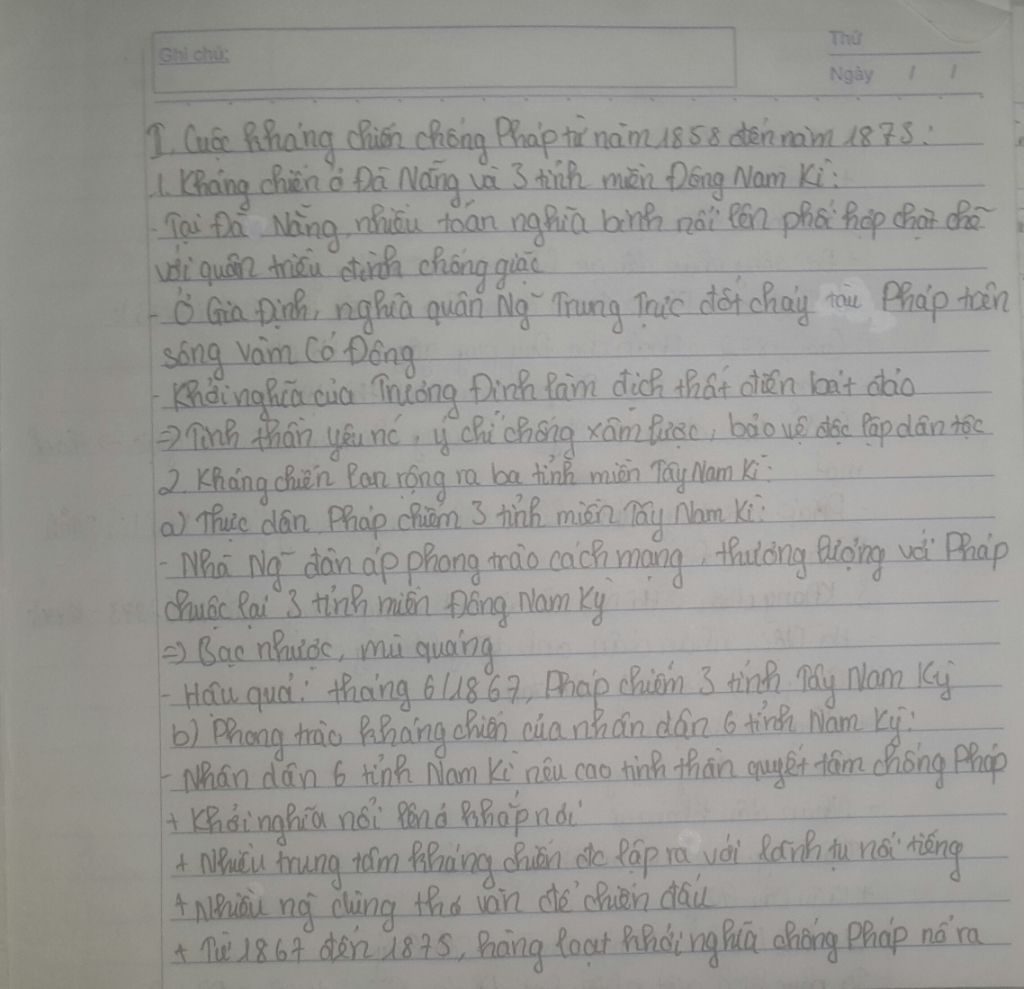 Ghi chú:
Thứ
Ngày / /
I. Cuộc kháng chiến chống Pháp từ năm 1858 đến năm 1875:
1. Kháng chiến ở Đà Nẵng và 3 tỉnh miền Đông Nam Kì:
- Tại Đà Nẵng, nhiều toán nghĩa binh nổi lên phối hợp chặt chẽ
với quân triều đình chống giặc
- Ở Gia Định, nghĩa quân Ng~ Trung Trực đốt cháy tàu Pháp trên
sông Vàm Cỏ Đông
- Khởi nghĩa của Trương Định làm địch thất điên bát đảo
=> Tinh thần yêu nc, ý chí chống xâm lược, bảo vệ độc lập dân tộc
2. Kháng chiến lan rộng ra ba tỉnh miền Tây Nam Kì:
a) Thực dân Pháp chiếm 3 tỉnh miền Tây Nam Kì:
- Nhà Ng~ đàn áp phong trào cách mạng, thương lượng với Pháp
chuộc lại 3 tỉnh miền Đông Nam Kỳ
=> Bạc nhược, mù quáng
- Hậu quả: tháng 6/1867, Pháp chiếm 3 tỉnh Tây Nam Kỳ
b) Phong trào kháng chiến của nhân dân 6 tỉnh Nam Kỳ:
- Nhân dân 6 tỉnh Nam Kì nêu cao tinh thần quyết tâm chống Pháp
+ Khởi nghĩa nổi lên ở khắp nơi
+ Nhiều trung tâm kháng chiến đc lập ra với lãnh tụ nổi tiếng
+ Nhiều ng dùng thơ văn để chiến đấu
+ Từ 1867 đến 1875, hàng loạt khởi nghĩa chống Pháp nổ ra